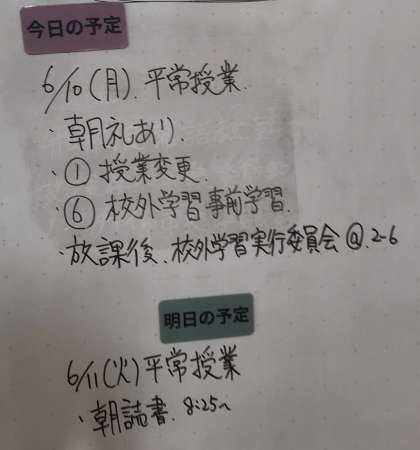 今日の予定
6/10(月).平常授業.
・朝礼あり.
・①授業変更.
・⑥校外学習事前学習.
・放課後、校外学習実行委員会@.2-6
明日の予定
6/11(火)平常授業
・朝読書.8:25〜